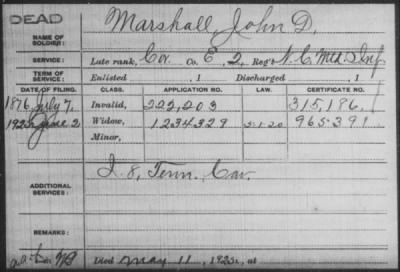 DEAD
NAME OF SOLDIER: Marshall John D.
SERVICE: Late rank, Cor. Co. E, 2, Reg't N.C. Mtd. Inf
TERM OF SERVICE: Enlisted , 1 Discharged , 1
DATE OF FILING. CLASS. APPLICATION NO. LAW. CERTIFICATE NO.
1876, July 7, Invalid, 222,203 315,186.
1925, June 2 Widow, 1234329 5-1-20 965-391
Minor,
ADDITIONAL SERVICES: I. 8, Tenn. Cav.
REMARKS:
Died May 11, 1925, at